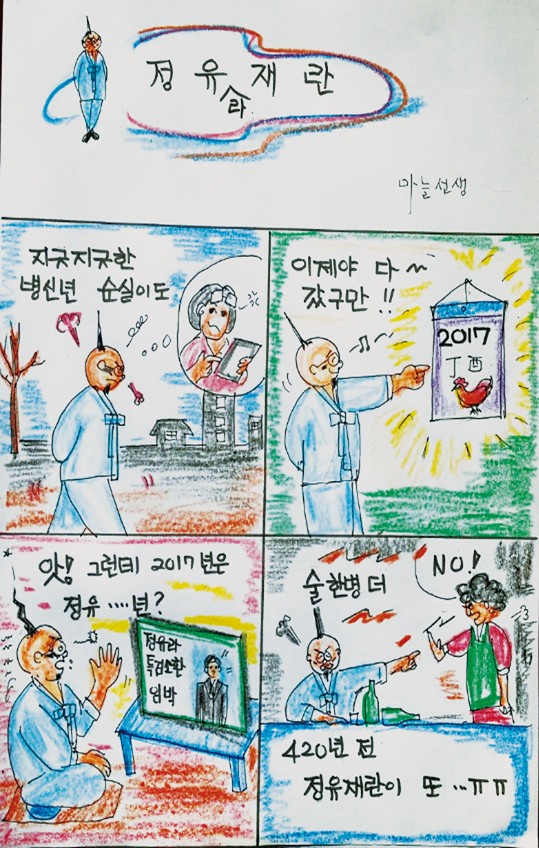 정유재란
라
마늘선생
지긋지긋한
병신년 순실이도
이제야 다~
갔구만!!
2017
丁酉
앗! 그런데 2017년은
정유····년?
정유라
특검소환
임박
술한병 더
NO!
420년 전
정유재란이 또···ㅠㅠ